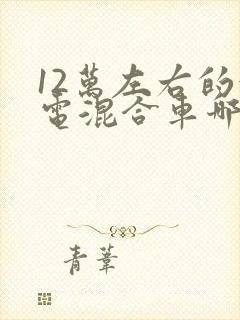 12萬左右的
電混合車哪
青葦